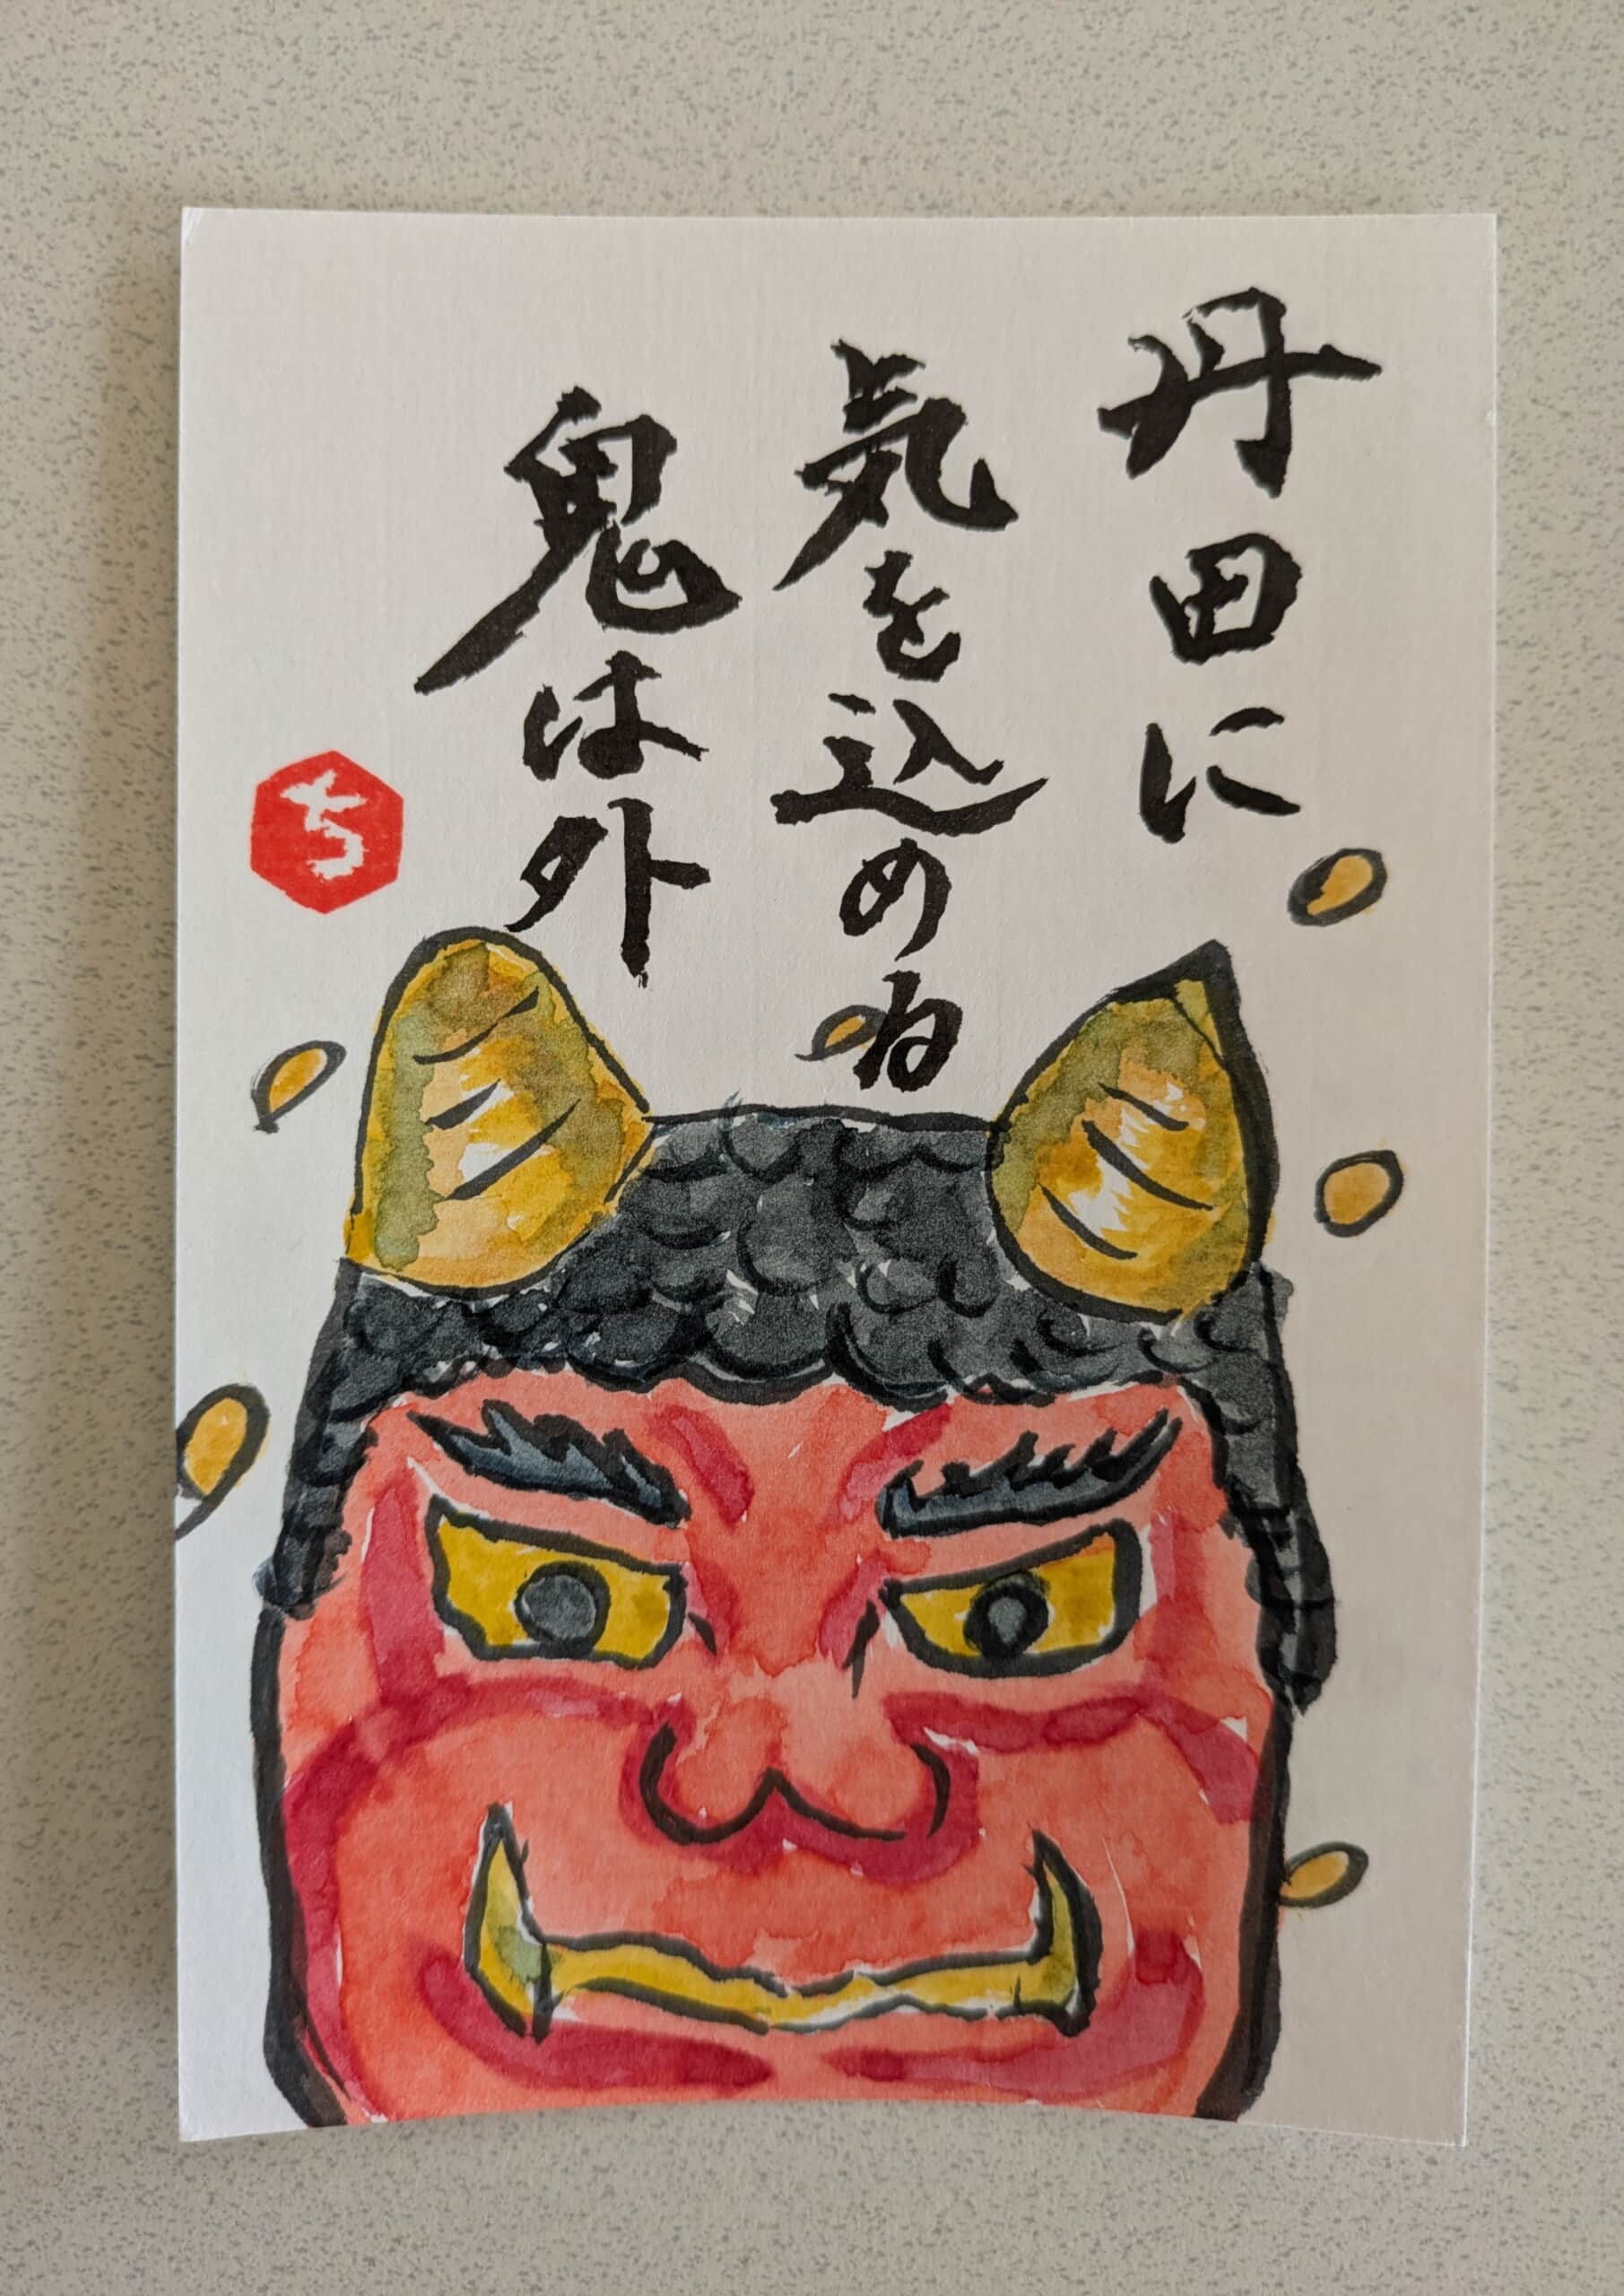 丹田に
気を込めゐ
鬼は外
ち